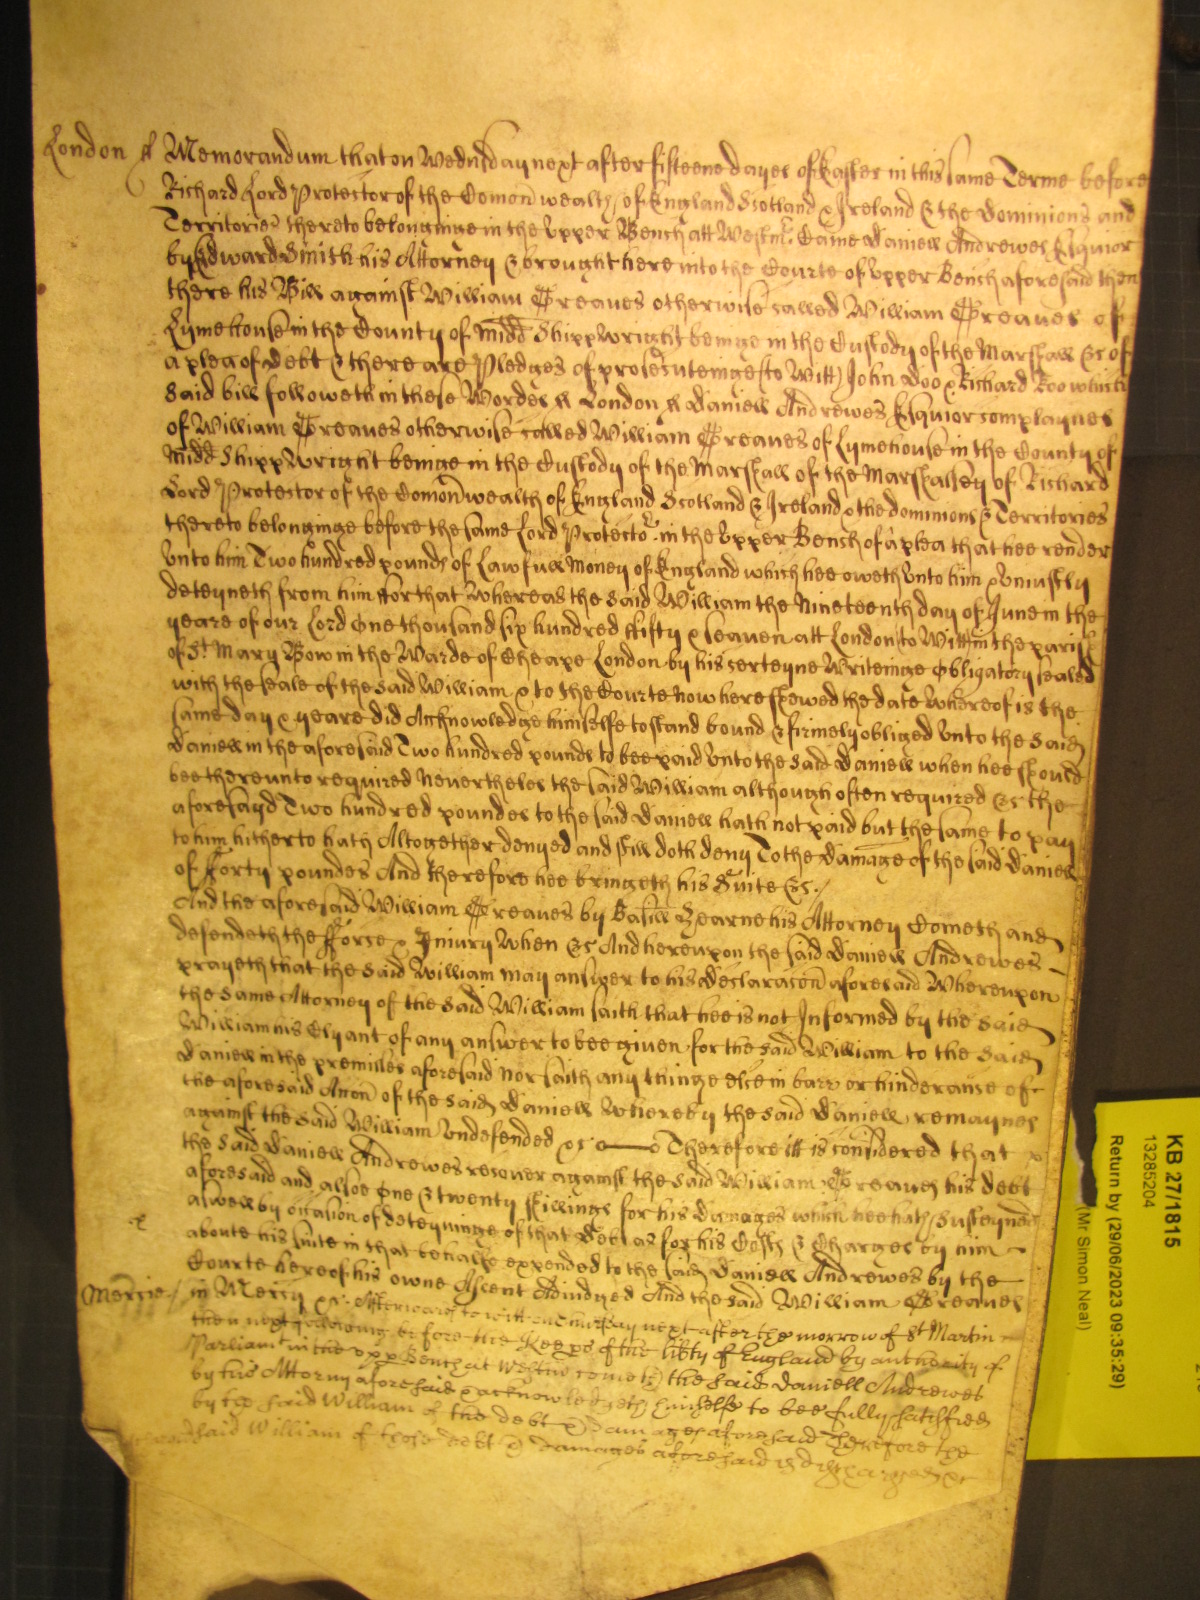 London ss Memorandum that on Wednsday next after fifteene dayes of Easter in this same Terme before
Richard Lord Protector of the Comon wealth of England Scotland & Ireland & the Dominions and
Territories thereto belonginge in the Upper Bench att Westmr. Came Daniell Andrewes Esquior
by Edward Smith his Attorney & brought here into the Courte of Upper Bench aforesaid then
there his Bill against William Greaves otherwise called William Greaves of
Lymehouse in the County of Midd Shippwright beinge in the Custody of the Marshall &c of
a plea of Debt & there are Pledges of prosecuteinge (to Witt) John Doo & Richard Roo which
said bill followeth in these Wordes ss London ss Daniell Andrewes Esquior complaynes
of William Greaves otherwise called William Greaves of Lymehouse in the County of
Midd Shippwright beinge in the Custody of the Marshall of the Marshallsey of Richard
Lord Protector of the Comon wealth of England Scotland & Ireland & the dominions & Territories
thereto belonginge before the same Lord Protector in the Upper Bench of a plea that hee render
unto him Two hundred pounds of Lawfull Money of England which hee oweth unto him & uniustly
deteyneth from him ffor that Whereas the said William the Nineteenth day of June in the
yeare of our Lord One thousand six hundred ffifty & seaven att London (to Witt) in the parish
of St Mary Bow in the Warde of Cheape London by his certeyne Writeinge Obligatory sealed
with the seale of the said William & to the Courte now here shewed the date whereof is the
same day & yeare did Acknowledge himselfe to stand bound & firmely obliged unto the said
Daniell in the aforesaid Two hundred pounds to bee paid unto the said Daniell when hee should
bee thereunto required Nevertheles the said William although often required &c the
aforesayd Two hundred poundes to the said Daniell hath not paid but the same to pay
to him hitherto hath Altogether denyed and still doth deny To the damage of the said Daniell
of fforty poundes And therefore hee bringeth his Suite &c./
And the aforesaid William Greaves by Basill Hearne his Attorney Cometh and
defendeth the fforce & Iniury When &c And hereupon the said Daniell Andrewes
prayeth that the said William may answer to his declaracon aforesaid Whereupon
the same Attorney of the said William saith that hee is not Informed by the said
William his Clyant of any answer to bee given for the said William to the said
Daniell in the premisses aforesaid nor saith any thinge else in barr or hinderanse of
the aforesaid Accon of the said Daniell Whereby the said Daniell remaynes
against the said William undefended &c Therefore itt is considered that
the said Daniell Andrewes recover against the said William Greaves his debt
aforesaid and alsoe one & twenty shillings for his Damages which hee hath susteyned
aswell by occasion of deteyninge of that Debt as for his Costs & Charges by him
aboute his suite in that behalfe expended to the said Daniell Andrewes by the
Courte here of his owne Assent Adiudged And the said William Greaves
Mercie / in Mercy &c. Afterwards to witt on thursday next after the morrow of St Martin
then next following before the Keeprs of the libty of England by authority of
Parliamt in the uppr Bench at Westmr cometh the said Daniell Andrewes
by his Attorny aforesaid & acknowledgeth himselfe to bee fully satisfied
by the said William of the debt & damages aforesaid Therefore the
said William of those debt & damages aforesaid is discharged &c
KB 27/1815
13285204
Return by (29/06/2023 09:35:29)
(Mr Simon Neal)